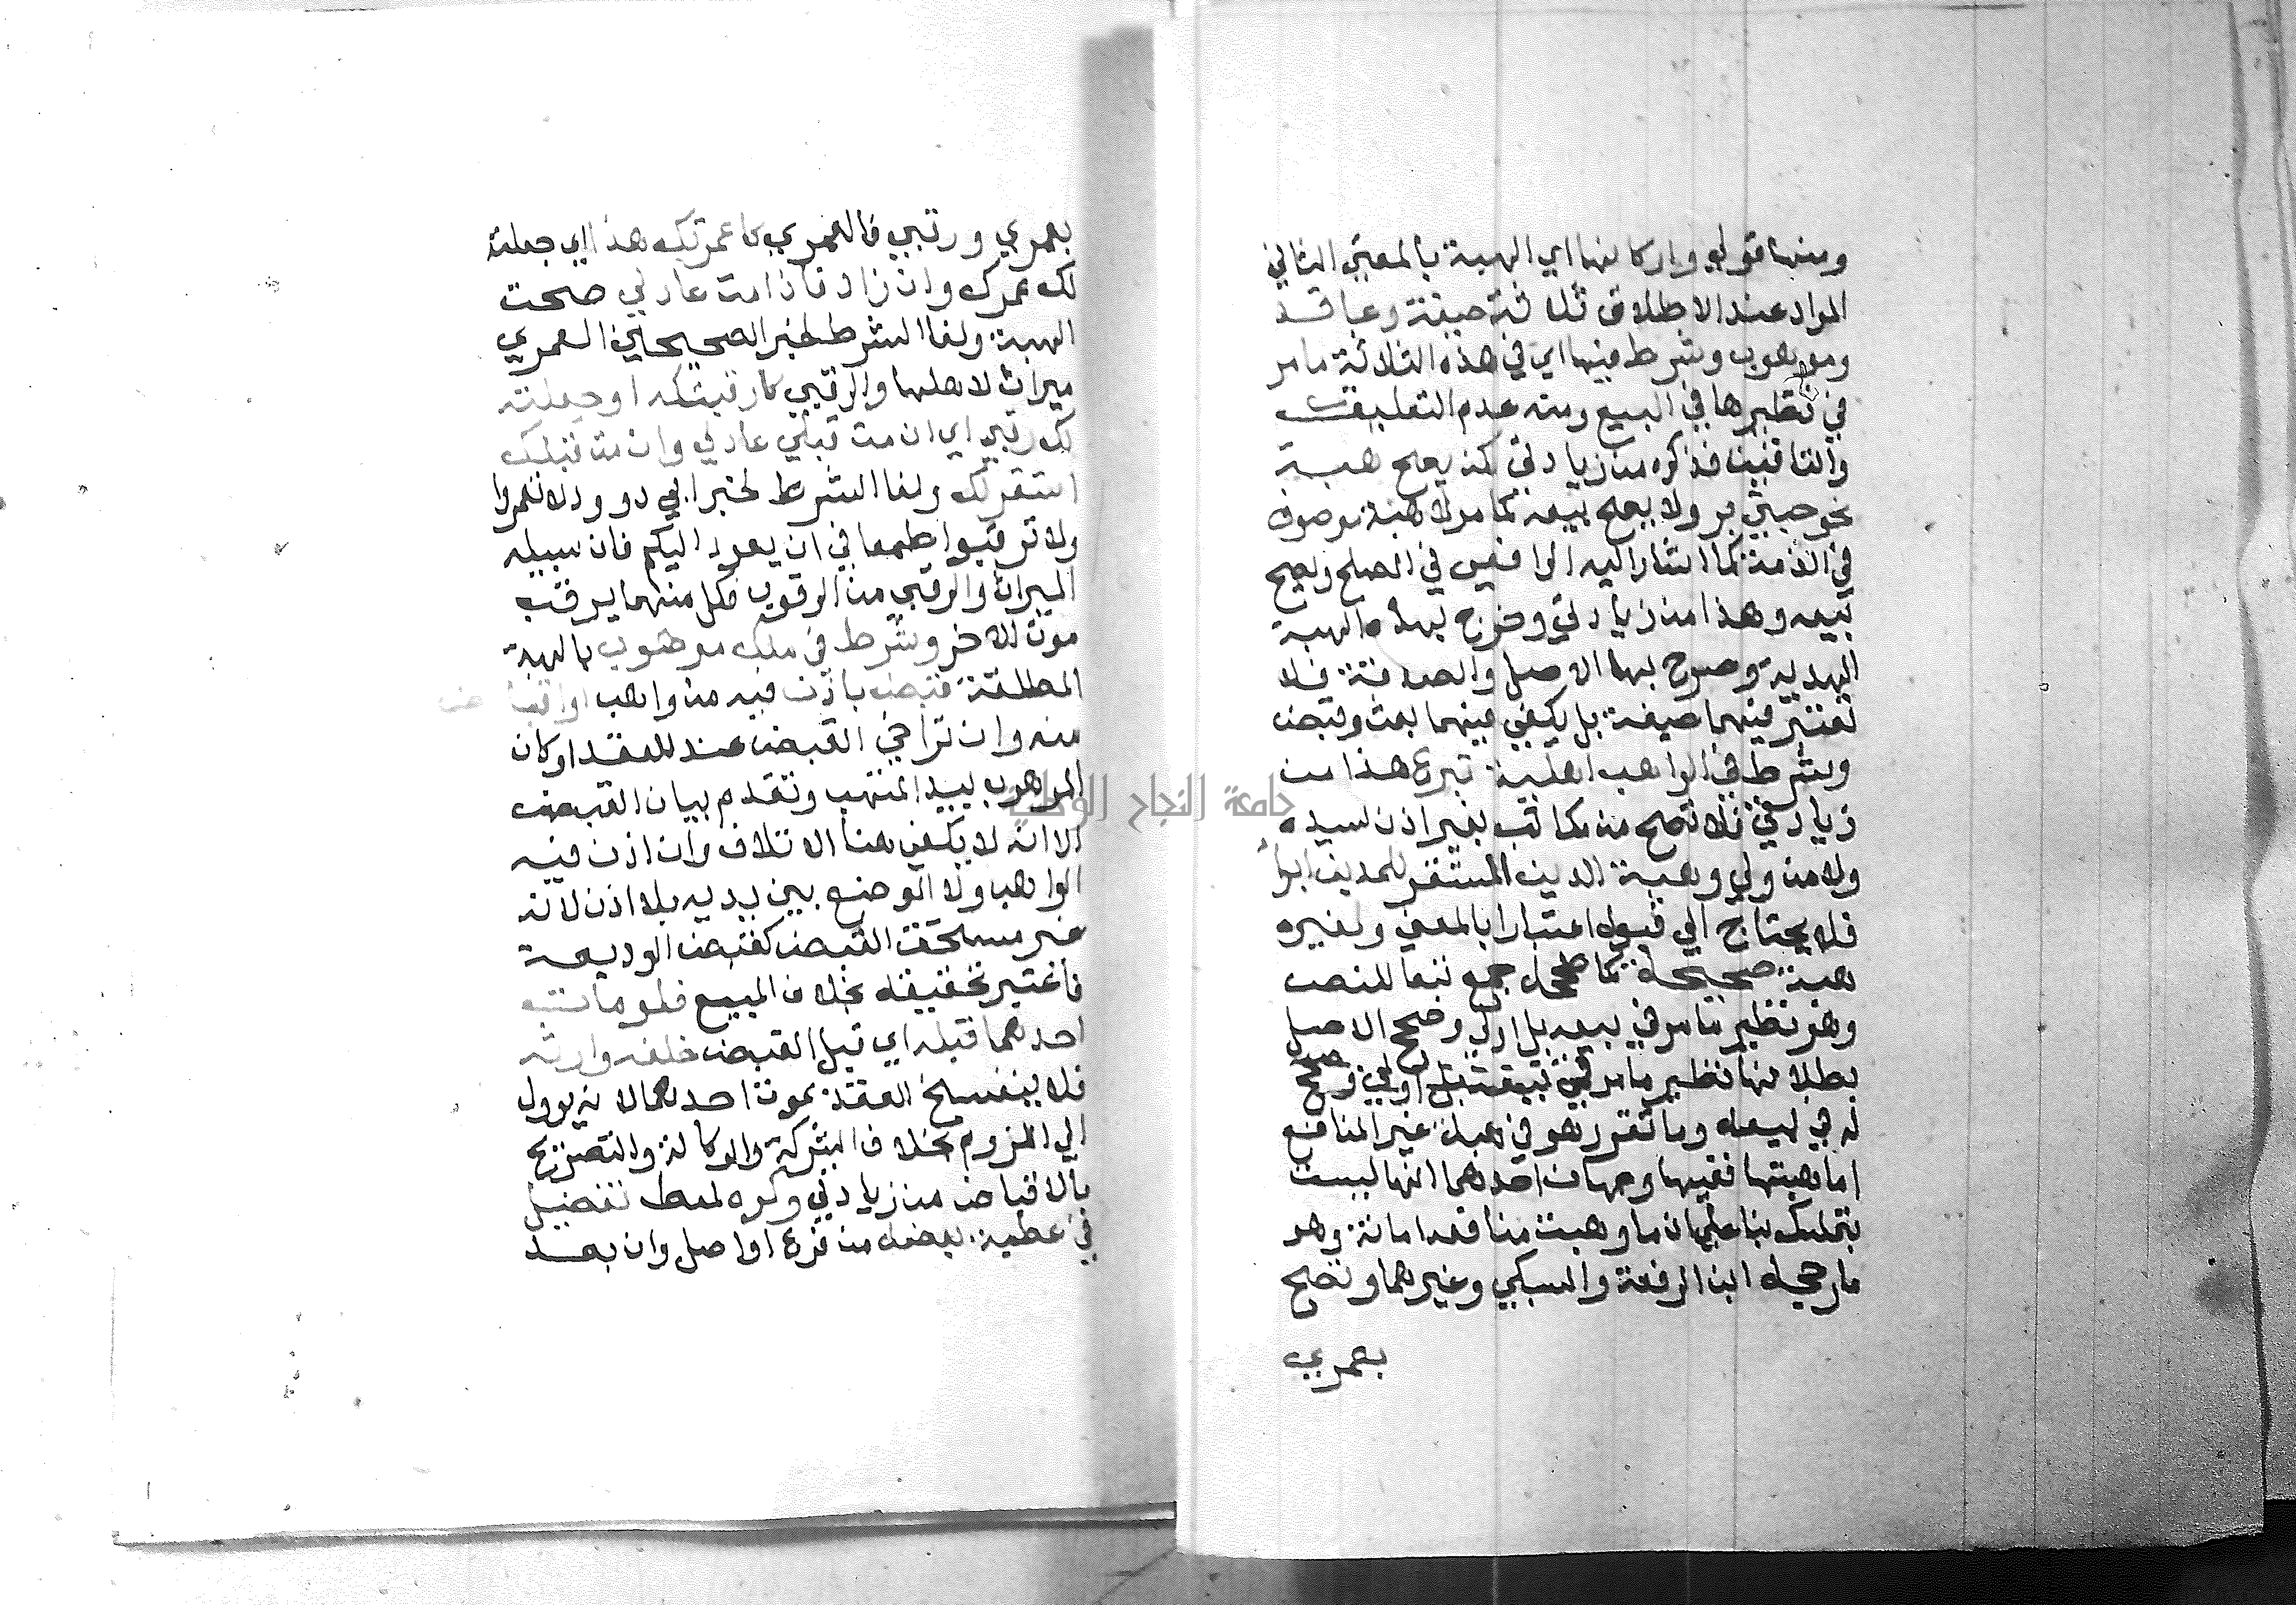 ومنها قولي واركانها اي الهبة بالمعني الثاني
المراد عند الاطلاق ثلاثة صيغة وعاقد
وموهوب وشرط فيها اي في هذه الثلاثة ما مر
في نظيرها في البيع ومنه عدم التعليق
والتاقيت فذكره من زيادتي لكن يصح هبة
نحو حبتي بر ولا يصح بيعه كما مر لا هبة موصوف
في الذمة كما اشار اليه الرافعي في الصلح ويصح
بيعه وهذا من زيادتي وخرج بهذه الهبة
الهدية وصرح بها الاصل والصدقة فلا
تعتبر فيهما صيغة بل يكفي فيهما بعث وقبض
وشرط في الواهب اهلية تبرع هذا من
زيادتي فلا تصح من مكاتب بغير اذن سيده
ولا من ولي وهبة الدين المستقر للمدين ابرا
فلا يحتاج الي قبول اعتبارا بالمعني ولغيره
هبة صحيحة كما صححه جمع تبعا للنص
وهو نظير ما مر في بيعه بل اولي وصحح الاصل
بطلانها نظير ما مر في بيعه بل اولي وصحح
له في بيعه وما تقرر هو في هبة غير المنافع
اما هبتها ففيها وجهان احدهما انها ليست
بتمليك بناء علي ان ما وهبت منافعه امانة وهو
ما رجحه ابن الرفعة والسبكي وغيرهما وتصح
بعمري
بعمري ورقبي فالعمري كاعمرتك هذا اي جعلته
لك عمرك وان زاد فاذا مت عاد لي صحت
الهبة ولغا الشرط لخبر الصحيحين العمري
ميراث لاهلها والرقبي كارقبتكه او جعلته
لك رقبي اي ان مت قبلي عاد لي وان مت قبلك
استقر لك ولغا الشرط لخبر ابي داود لا تعمروا
ولا ترقبوا طمعا في ان يعود اليكم فان سبيله
الميراث والرقبي من الرقوب فكل منهما يرقب
موت الاخر وشرط في ملك موهوب بالهبة
المطلقة قبض باذن فيه من واهب او اقباض
منه وان تراخي القبض عند العقد او كان
الموهوب بيد المتهب وتقدم بيان القبض
الا انه لا يكفي هنا الاتلاف وان اذن فيه
الواهب ولا الوضع بين يديه بلا اذن لانه
غير مستحق القبض كقبض الوديعة
فاعتبر تحقيقه بخلاف المبيع فلو مات
احدهما قبله اي قبل القبض خلفه وارثه
فلا ينفسخ العقد بموت احدهما لانه يوول
الي اللزوم بخلاف الشركة والوكالة والتصريح
بالاقباض من زيادتي وكره لمعط تفضيل
في عطية بعضه من فرع او اصل وان بعد
جامعة النجاح الوطنية